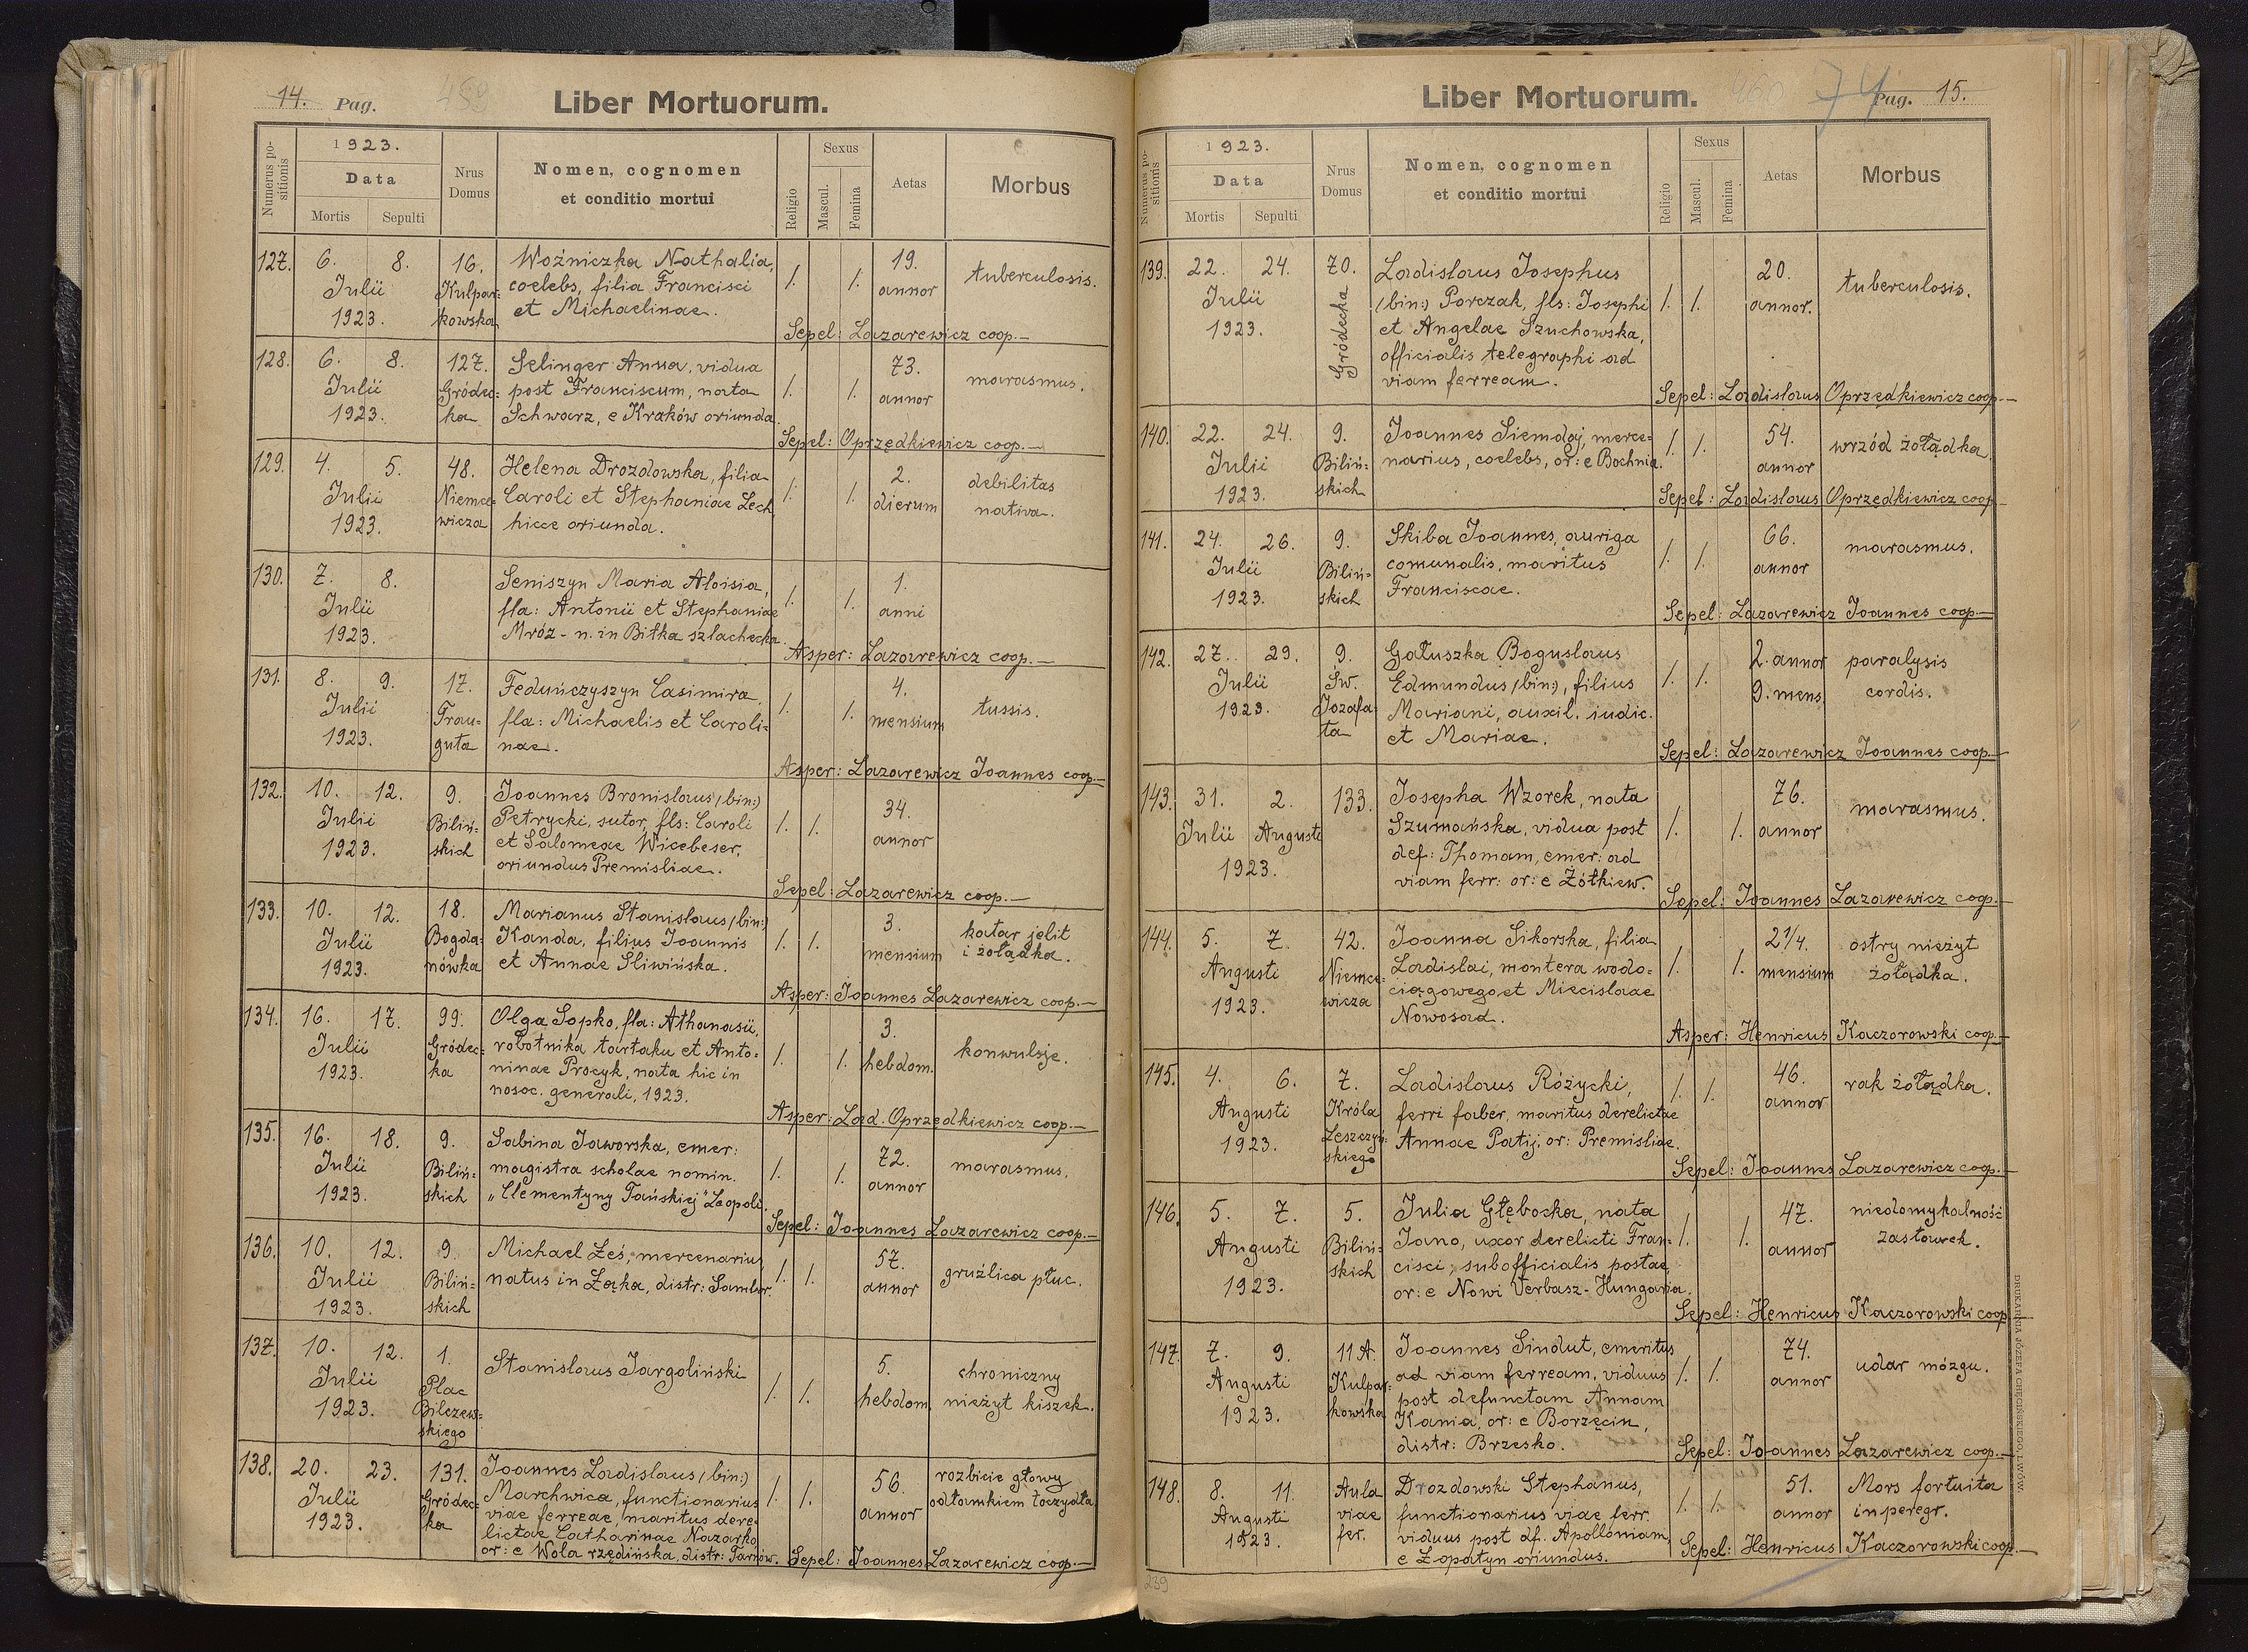 14. Pag.
Liber Mortuorum.
Numerus positionis
1923.
Data
Mortis Sepulti
Nrus Domus
Nomen, cognomen
et conditio mortui
Religio
Sexus
Mascul.
Femina
Aetas
Morbus
127. 6. 8. 16. Woźniczka Nathalia, /. /. 19. tuberculosis.
Julii Kulpar= coelebs, filia Francisci annor
1923. kowska et Michaelinae.
Sepel: Lazarewicz coop.—
128. 6. 8. 127. Selinger Anna, vidua /. /. 73. marasmus.
Julii Gródec= post Franciscum, nata annor
1923. ka Schwarz, e Kraków oriunda.
Sepel: Oprzędkiewicz coop.—
129. 4. 5. 48. Helena Drozdowska, filia /. /. 2. debilitas
Julii Niemce= Caroli et Stephaniae Lech, dierum nativa.
1923. wicza hicce oriunda.
130. 7. 8. Seniszyn Maria Aloisia, /. /. 1.
Julii fla: Antonii et Stephaniae anni
1923. Mróz - n. in Biłka szlachecka.
Asper: Lazarewicz coop.—
131. 8. 9. 17. Feduńczyszyn Casimira, /. /. 4. tussis.
Julii Trau= fla: Michaelis et Caroli= mensium
1923. guta nae.
Asper: Lazarewicz Joannes coop.—
132. 10. 12. 9. Joannes Bronislaus (bin:) /. /. 34.
Julii Biliń= Petrycki, sutor, fls: Caroli annor
1923. skich et Salomeae Wicebeser,
oriundus Premisliae.
Sepel: Lazarewicz coop.—
133. 10. 12. 18. Marianus Stanislaus (bin:) /. /. 3. katar jelit
Julii Bogda= Kanda, filius Joannis mensium i żołądka.
1923. nówka et Annae Sliwińska.
Asper: Joannes Lazarewicz coop.—
134. 16. 17. 99. Olga Sopko, fla: Athanasii, /. /. 3. konwulsje.
Julii Gródec= robotnika tartaku et Anto= hebdom.
1923. ka ninae Procyk, nata hic in
nosoc. generali, 1923.
Asper: Lad. Oprzędkiewicz coop.—
135. 16. 18. 9. Sabina Jaworska, emer: /. /. 72. marasmus.
Julii Biliń= magistra scholae nomin. annor
1923. skich „Clementyny Tańskiej" Leopoli.
Sepel: Joannes Lazarewicz coop.—
136. 10. 12. 9. Michael Łeś, mercenarius, /. /. 57. gruźlica płuc.
Julii Biliń= natus in Łąka, distr: Sambor. annor
1923. skich
137. 10. 12. 1. Stanislaus Jargoliński /. /. 5. chroniczny
Julii Plac hebdom. nieżyt kiszek.
1923. Bilczew=
skiego
138. 20. 23. 131. Joannes Ladislaus (bin:) /. /. 56. rozbicie głowy
Julii Gródec= Marchwica, functionarius annor odłamkiem toczydła
1923. ka viae ferreae, maritus dere=
lictae Catharinae Nazarko,
or: e Wola rzędińska, distr: Tarnów.
Sepel: Joannes Lazarewicz coop.—
Liber Mortuorum.
460 74
Pag. 15.
Numerus positionis
1923.
Data
Mortis Sepulti
Nrus Domus
Nomen, cognomen
et conditio mortui
Religio
Sexus
Mascul.
Femina
Aetas
Morbus
139. 22. 24. 70. Ladislaus Josephus /. /. 20. tuberculosis.
Julii Gródecka (bin:) Porczak, fls: Josephi annor.
1923. et Angelae Szuchowska,
officialis telegraphi ad
viam ferream.
Sepel: Ladislaus Oprzędkiewicz coop.—
140. 22. 24. 9. Joannes Siemdaj, merce= /. /. 54. wrzód żołądka.
Julii Biliń= narius, coelebs, or: e Bochnia. annor
1923. skich
Sepel: Ladislaus Oprzędkiewicz coop.—
141. 24. 26. 9. Skiba Joannes, auriga /. /. 66. marasmus.
Julii Biliń= comunalis, maritus annor
1923. skich Franciscae.
Sepel: Lazarewicz Joannes coop.—
142. 27. 29. 9. Gałuszka Boguslaus /. /. 2. annor paralysis
Julii Św. Edmundus (bin:), filius 9. mens. cordis.
1923. Jozafa= Mariani, auxil. iudic.
ta et Mariae.
Sepel: Lazarewicz Joannes coop.—
143. 31. 2. 133. Josepha Wzorek, nata /. /. 76. marasmus.
Julii Augusti Szumańska, vidua post annor
1923. def: Thomam, emer: ad
viam ferr: or: e Żółkiew.
Sepel: Joannes Lazarewicz coop.—
144. 5. 7. 42. Joanna Sikorska, filia /. /. 2 1/4. ostry nieżyt
Augusti Niemce= Ladislai, montera wodo= mensium żołądka.
1923. wicza ciągowego et Miecislaae
Nowosad.
Asper: Henricus Kaczorowski coop.—
145. 4. 6. 7. Ladislaus Różycki, /. /. 46. rak żołądka.
Augusti Króla ferri faber, maritus derelictae annor
1923. Leszczyń= Annae Patij, or: Premisliae.
skiego
Sepel: Joannes Lazarewicz coop.—
146. 5. 7. 5. Julia Głębocka, nata /. /. 47. niedomykalność
Augusti Biliń= Jano, uxor derelicti Fran= annor zastawek.
1923. skich cisci, subofficialis postae,
or: e Nowi Verbasz - Hungaria.
Sepel: Henricus Kaczorowski coop.
147. 7. 9. 11A. Joannes Sindut, emeritus /. /. 74. udar mózgu.
Augusti Kulpar= ad viam ferream, viduus annor
1923. kowska post defunctam Annam
Kania, or: e Borzęcin,
distr: Brzesko.
Sepel: Joannes Lazarewicz coop.—
148. 8. 11. Aula Drozdowski Stephanus, /. /. 51. Mors fortuita
Augusti viae functionarius viae ferr. annor in peregr.
1923. fer. viduus post df. Apolloniam,
e Łopatyn oriundus.
Sepel: Henricus Kaczorowski coop.—
239
DRUKARNIA JÓZEFA CHĘCIŃSKIEGO, LWÓW.